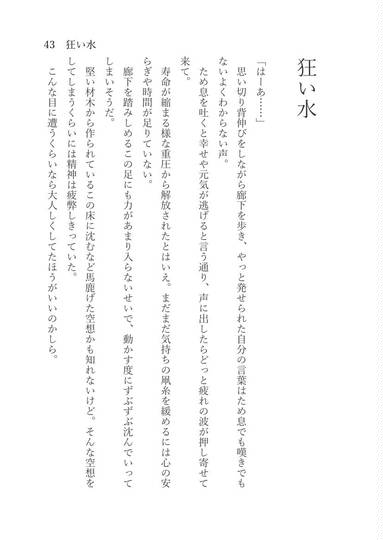 狂い水
「はーあ……」
　思い切り背伸びをしながら廊下を歩き、やっと発せられた自分の言葉はため息でも嘆きでも
ないよくわからない声。
　ため息を吐くと幸せや元気が逃げると言う通り、声に出したらどっと疲れの波が押し寄せて
来て。
　寿命が縮まる様な重圧から解放されたとはいえ。まだまだ気持ちの凧糸を緩めるには心の安
らぎや時間が足りていない。
　廊下を踏みしめるこの足にも力があまり入らないせいで、動かす度にずぶずぶ沈んでいって
しまいそうだ。
　堅い材木から作られているこの床に沈むなど馬鹿げた空想かも知れないけど。そんな空想を
してしまうくらいには精神は疲弊しきっていた。
　こんな目に遭うくらいなら大人しくしてたほうがいいのかしら。
43　狂い水